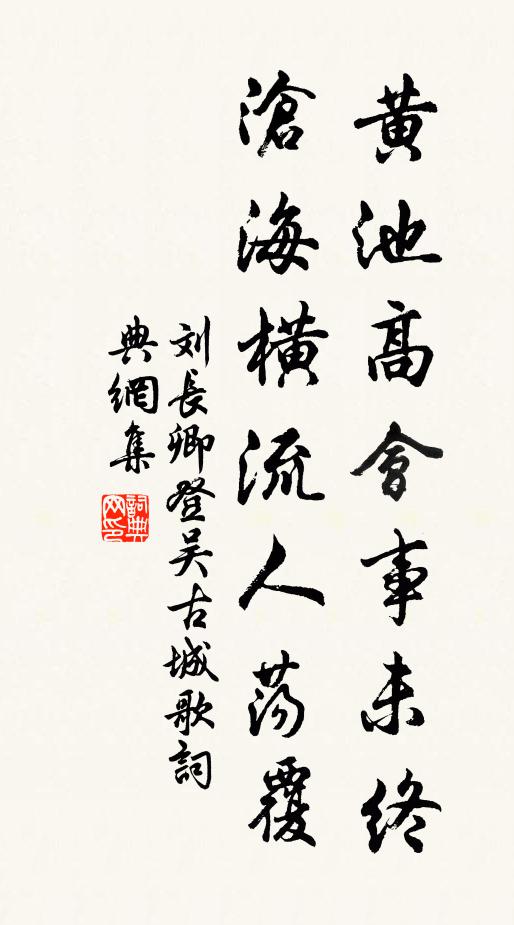 黄池高會事未終
滄海橫流人荡覆
刘長卿登吴古城歌詞
典網集
詞典
网印